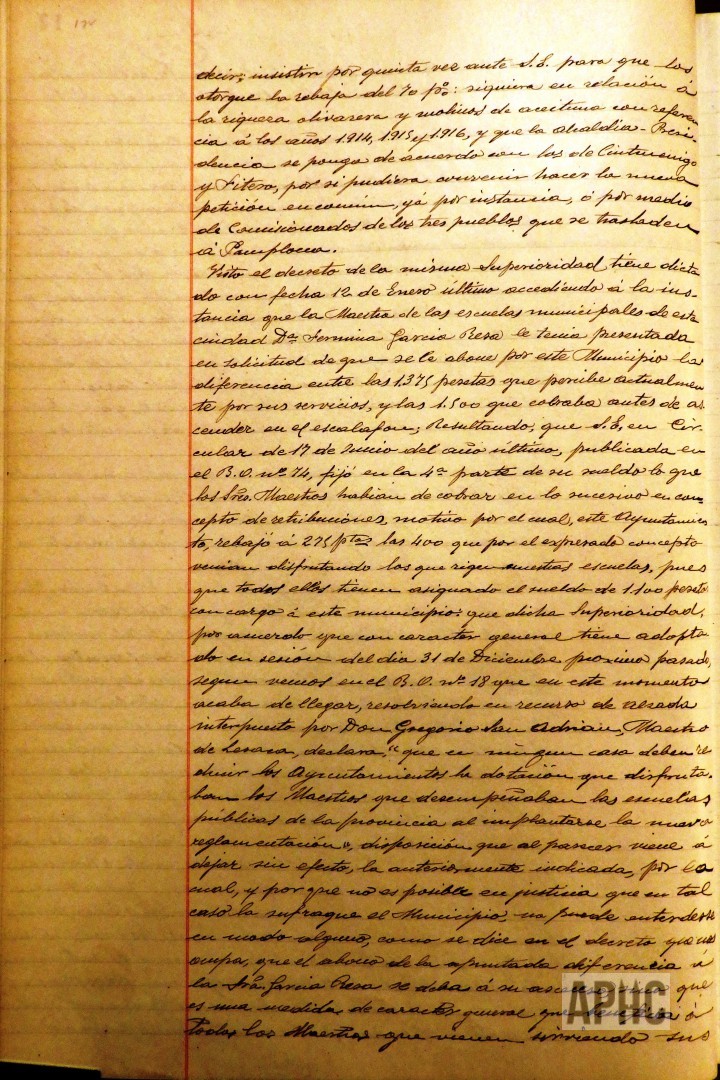 decir; insistir por quinta vez ante S.E. para que los
otorgue la rebaja del 70 p%: siquiera en relación á
la riqueza olivarera y molinos de aceituna con referen
cia á los años 1.914, 1.915 y 1.916, y que la Alcaldia-Presi
dencia se ponga de acuerdo con los de Cintruenigo
y Fitero, por si pudiera convenir hacer la nueva
petición en comun, yá por instancia, ó por medio
de Comisionados de los tres pueblos que se trasladen
á Pamplona.
Visto el decreto de la misma Superioridad tiene dicta
do con fecha 12 de Enero último accediendo á la ins-
tancia que la Maestra de las escuelas municipales de esta
ciudad Dª Fermina Garcia Resa le tenia presentada
en solicitud de que se le abone por este Municipio la
diferencia entre las 1.375 pesetas que percibe actualmen
te por sus servicios, y las 1.500 que cobraba antes de as
cender en el escalafon; Resultando, que S.E. en Cir
cular de 17 de Junio del año último, publicada en
el B.O. nº 74, fijó en la 4ª parte de su sueldo lo que
los Sres. Maestros habian de cobrar en lo sucesivo en con
cepto de retribuciones, motivo por el cual, este Ayuntamien
to, rebajó á 275 ptas las 400 que por el expresado concepto
venian disfrutando los que rigen nuestras escuelas, pues
que todos ellos tienen asignado el sueldo de 1.100 pesetas
con cargo á este municipio: que dicha Superioridad,
por acuerdo que con caracter general tiene adopta
do en sesión del dia 31 de Diciembre proximo pasado,
segun vemos en el B.O. nº 18 que en este momento
acaba de llegar, resolviendo en recurso de alzada
interpuesto por Don Gregorio San Adrian, Maestro
de Lesaca, declara, "que en ningun caso deben re
ducir los Ayuntamientos la dotación que disfruta-
ban los Maestros que desempeñaban las escuelas
públicas de la provincia al implantarse la nueva
reglamentación", disposición que al parecer viene á
dejar sin efecto, la anteriormente indicada, por lo
cual, y por que no es posible en justicia que en tal
caso la sufrague el Municipio no puede entenderse
en modo alguno, como se dice en el decreto que nos
ocupa, que el abono de la apuntada diferencia á
la Sra. Garcia Resa se deba á su ascenso, sino que
es una medida de caracter general que á
todos los Maestros que vienen sirviendo sus
APHC